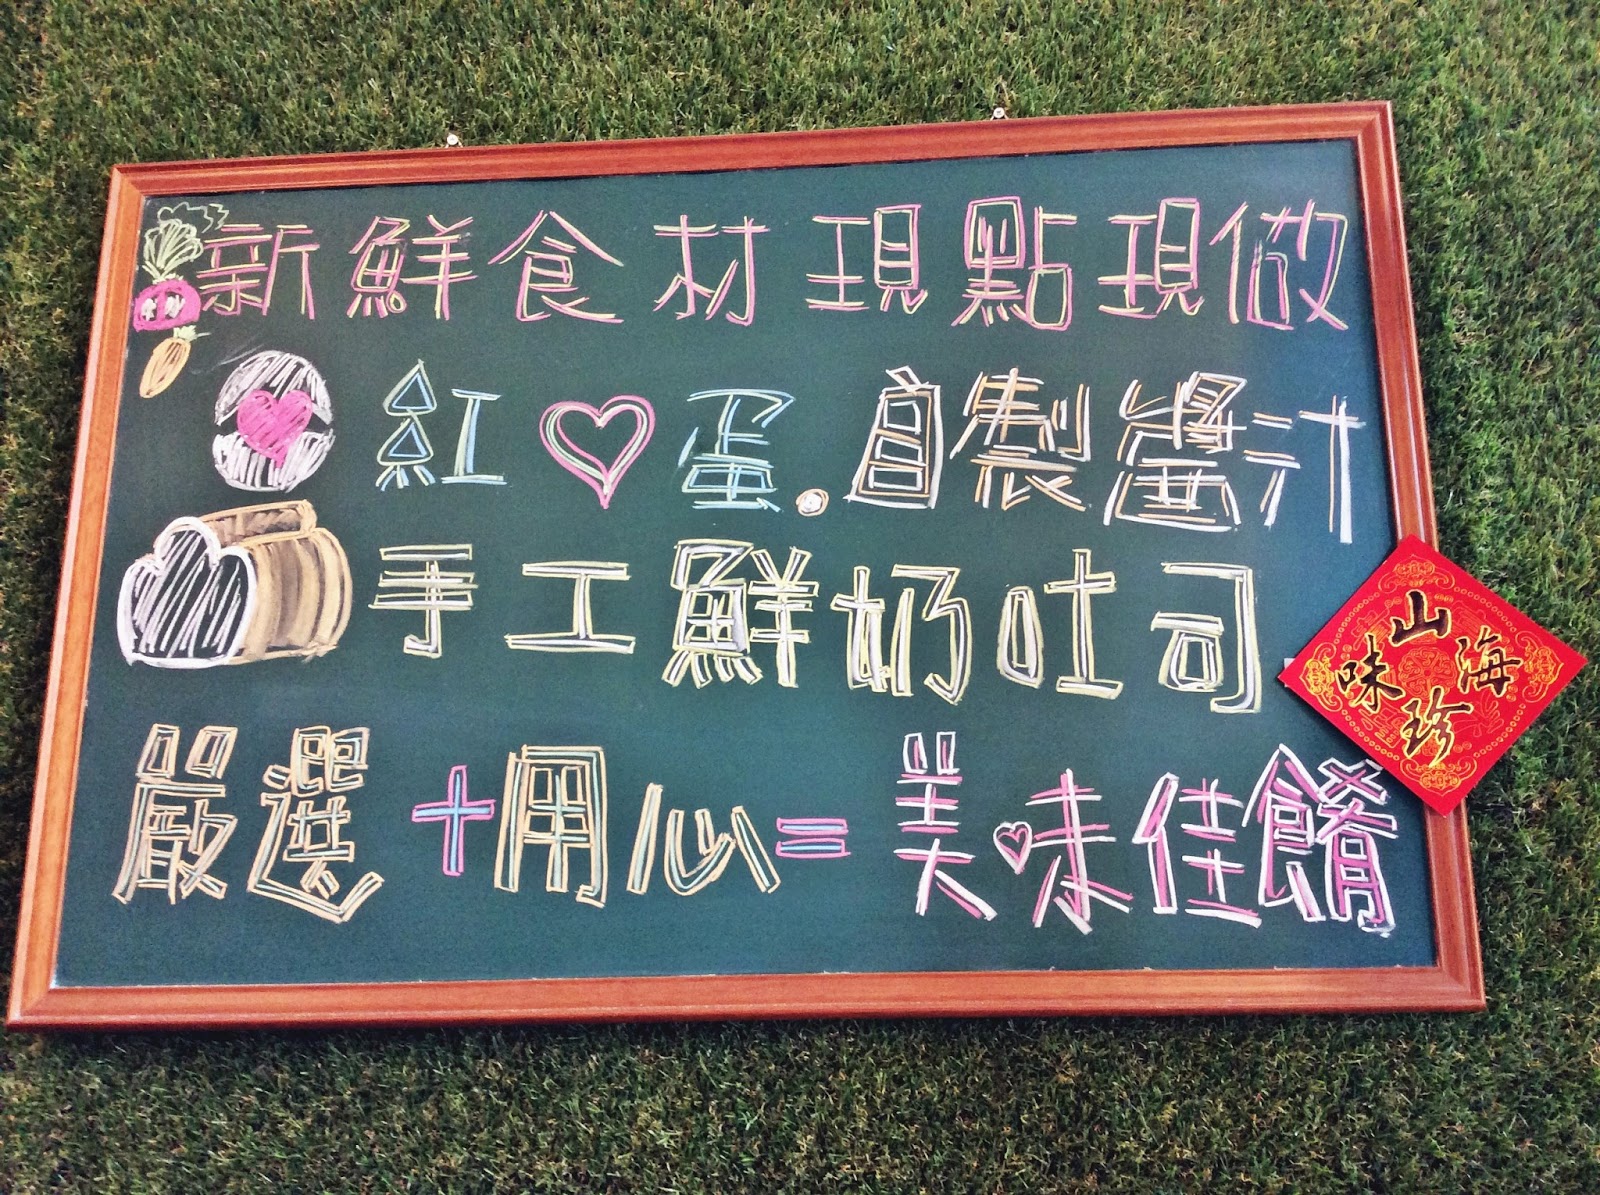 新鮮食材現點現做
紅♡蛋.自製醬汁
手工鮮奶吐司
嚴選+用心=美味佳餚
山珍海味